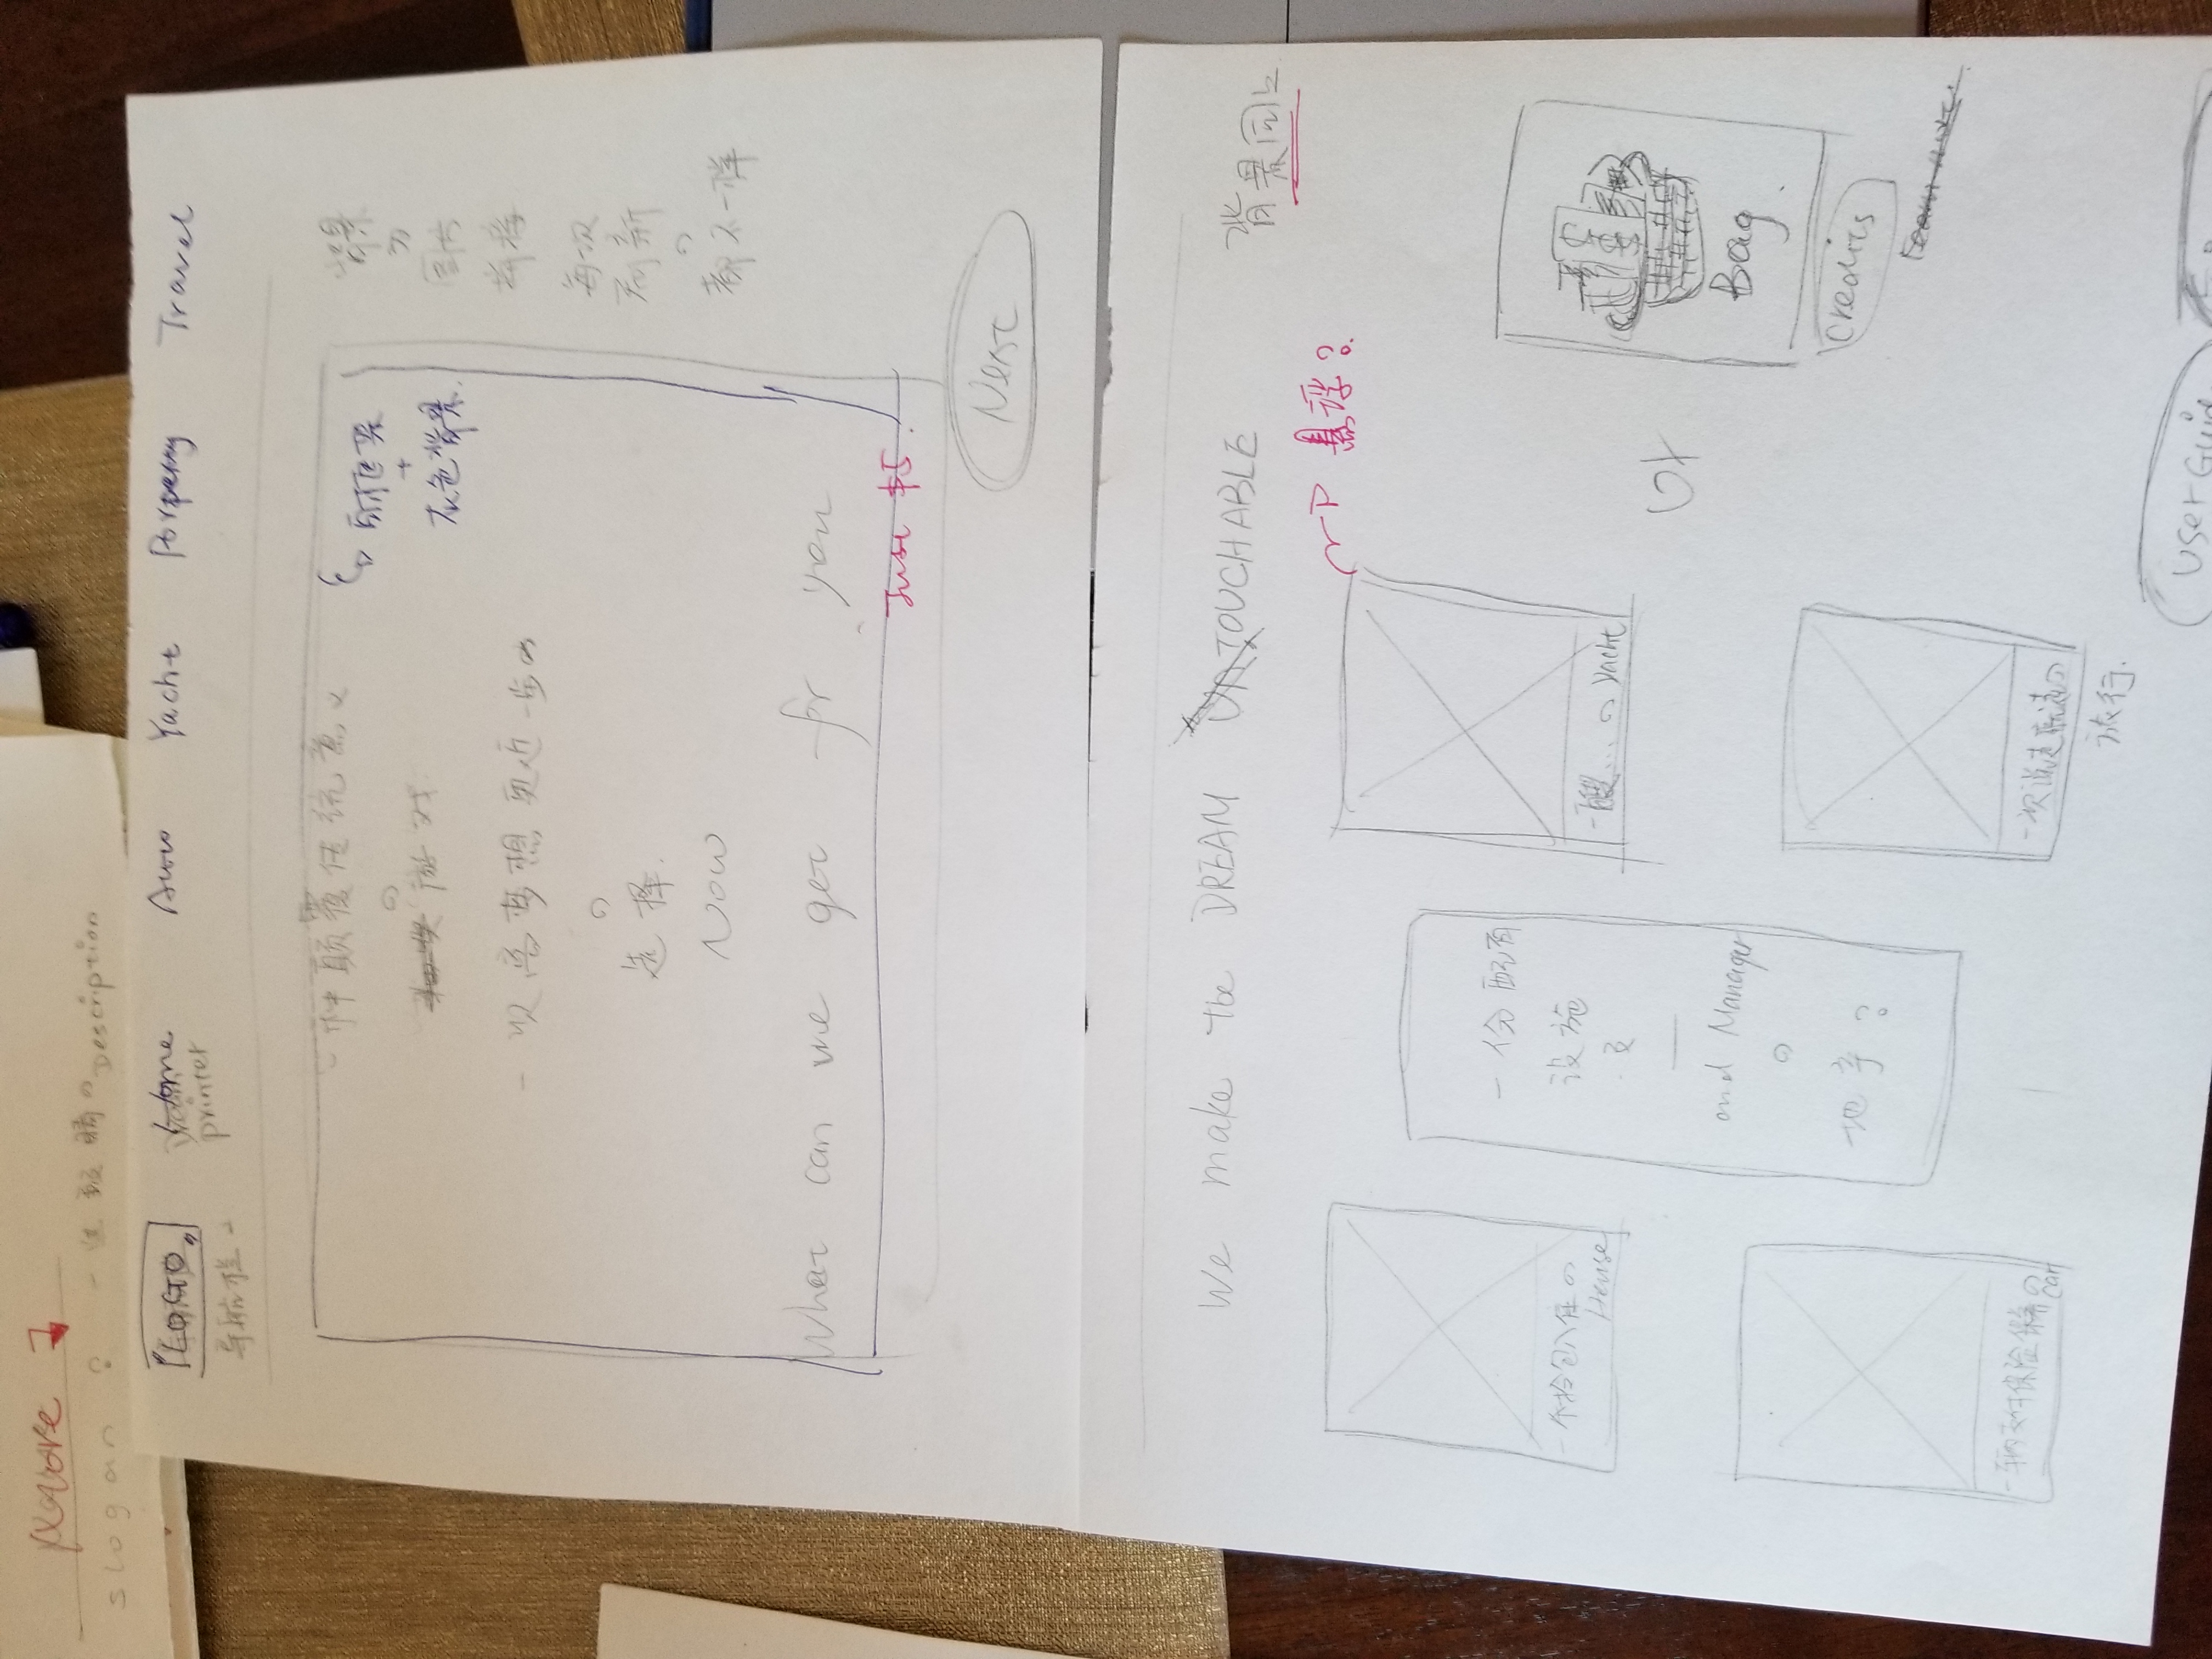 slogan ? 一些 の Description
"LOGO" Home Auto Yacht Travel
printer
导航栏
一种颠覆传统意义
の
游戏
一次离梦想更近一步の
の
选择.
Now
What can we get for you
Just $5.
+
灰色背景.
背景
为
图片
拼接
每次
刷新
の
都不一样
Next
We make the DREAM UNTOUCHABLE
背景同上
悬浮?
一个拎包入住の
House
一份配有
设施
及
and Manager
の
地产?
一艘...の Yacht
or
Bag.
Credits
一辆支付保险保养の
car
一次说走就走の
旅行.
User Guide